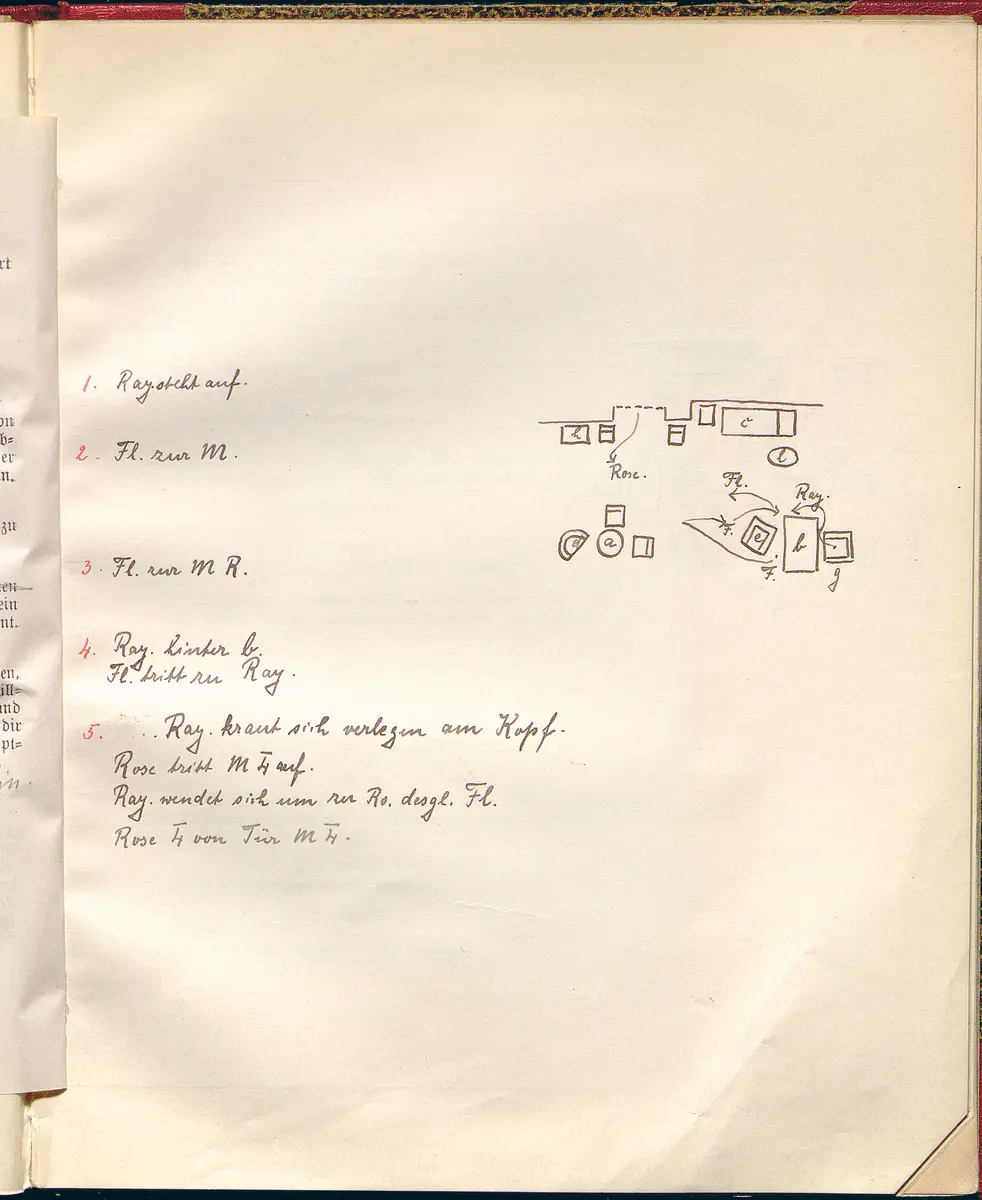 rt
on
b=
er
n.
zu
ten
ein
nt.
en,
ill=
und
dir
pt=
in.
1. Ray. steht auf.
2. Fl. zur M.
3. Fl. zur M R.
4. Ray. hinter b.
Fl. tritt zu Ray.
5. .. Ray. kraut sich verlegen am Kopf.
Rose tritt M H auf.
Ray. wendet sich um zu Ro. desgl. Fl.
Rose H von Tür M H.
h
c
l
Rose.
Fl.
Ray.
F.
d
a
e
b
F.
g